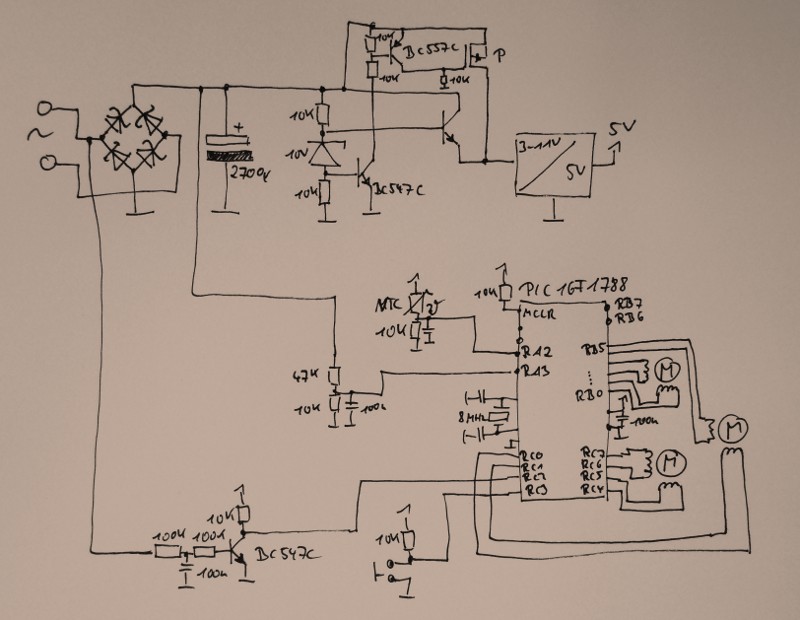 10K
BC557C
P
10K
10K
~
+
2700µ
10K
10V
10K
BC547C
3-11V
5V
5V
PIC 16F1788
10K
MCLR
RB7
RB6
NTC
ϑ
10K
RA2
RA3
RB5
RB0
M
47K
10K
100n
8MHz
100n
M
RC0
RC1
RC2
RC3
RC7
RC6
RC5
RC4
M
10K
100K
100K
100n
BC547C
10K